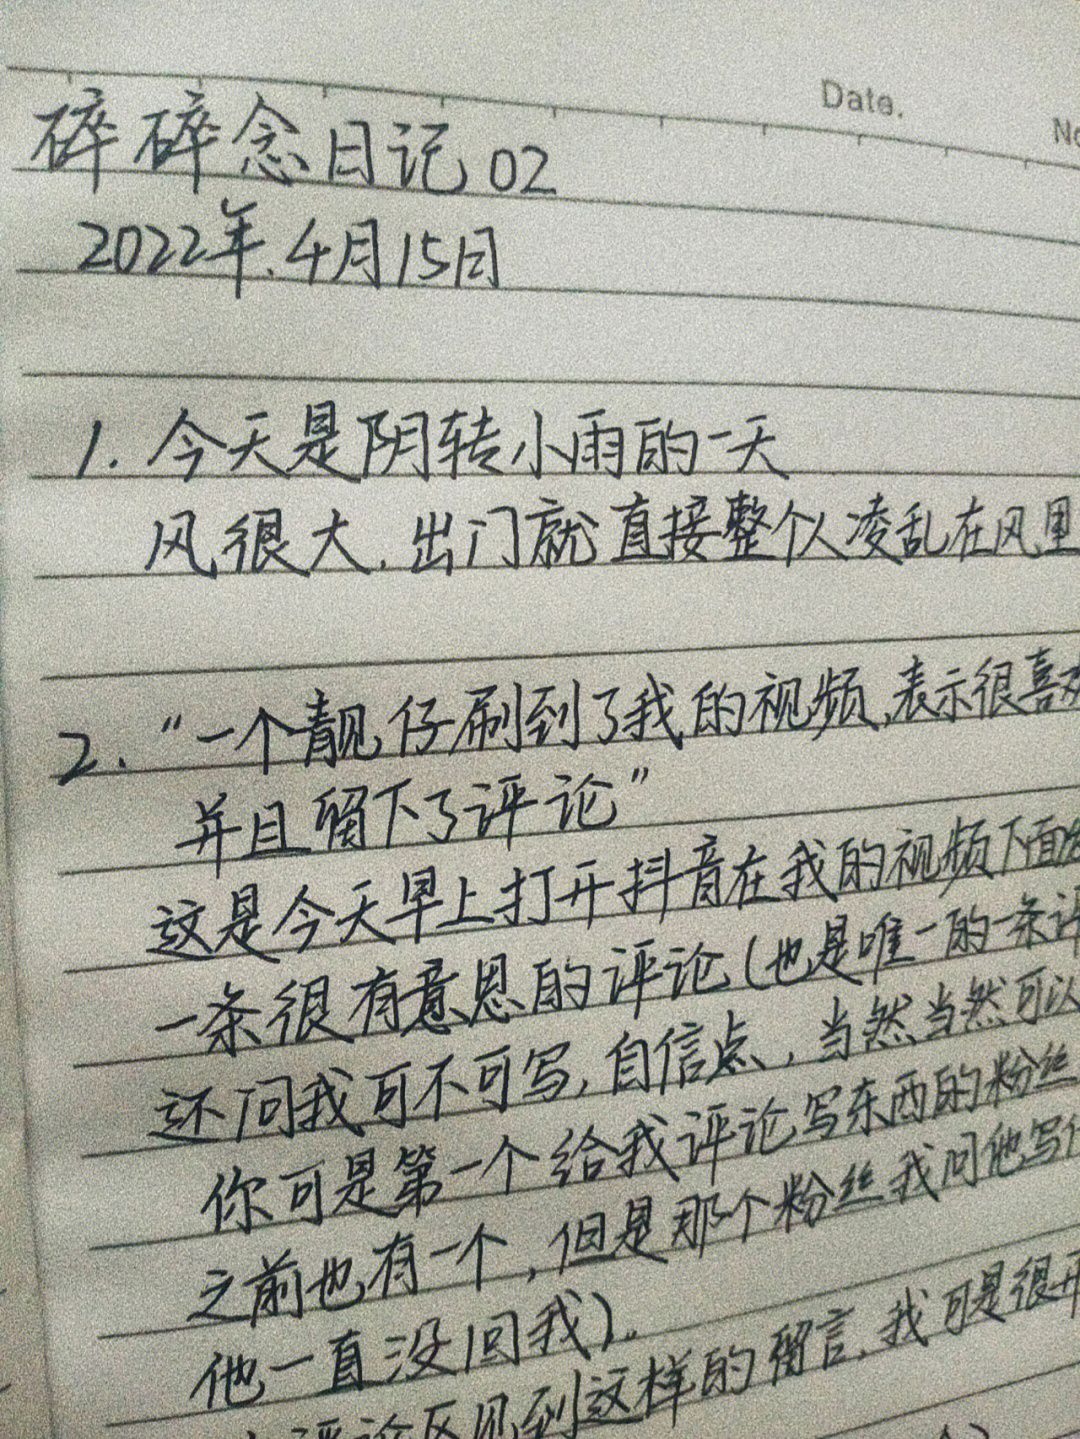 Date.
No
碎碎念日记02
2022年.4月15日
1. 今天是阴转小雨的一天
风很大.出门就直接整个人凌乱在风里
2. “一个靓仔刷到了我的视频,表示很喜欢
并且留下了评论”
这是今天早上打开抖音在我的视频下面
一条很有意思的评论(也是唯一的一条评
还问我可不可写,自信点,当然当然可以
你可是第一个给我评论写东西的粉丝
之前也有一个,但是那个粉丝我问他写什
他一直没回我)。
评论区见到这样的留言.我可是很开